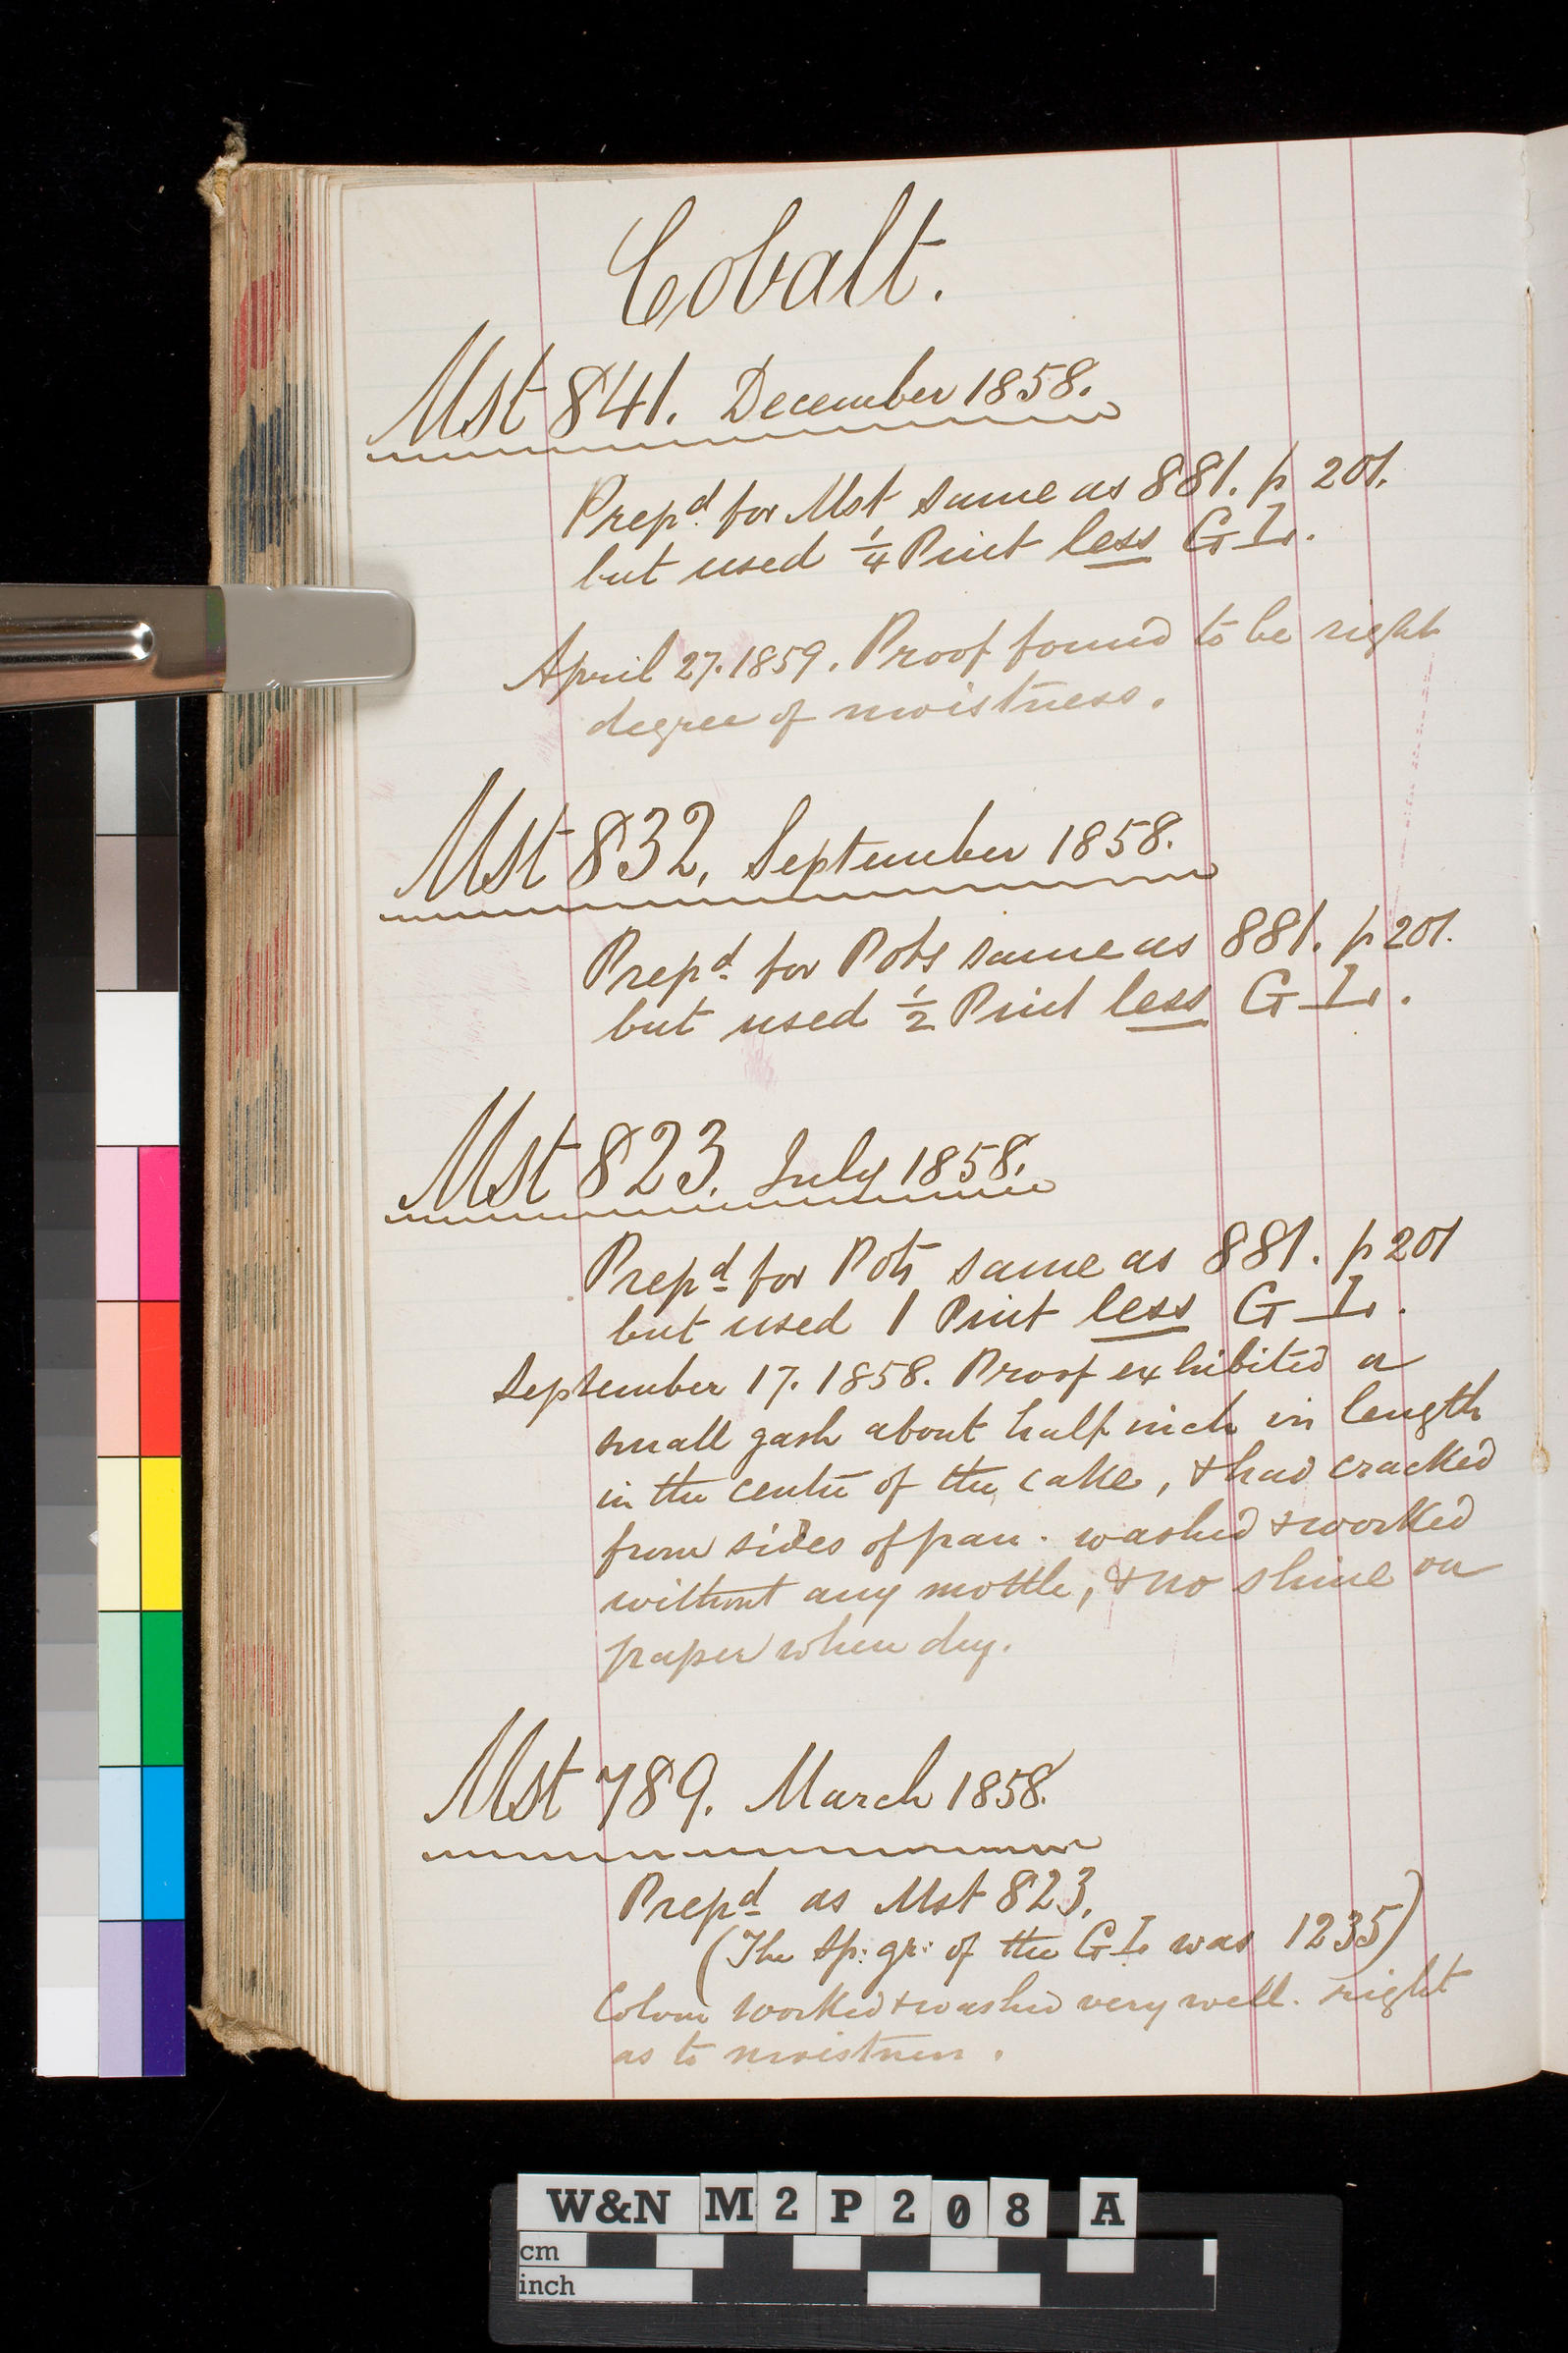 Cobalt.
Mst 841. December 1858.
Prepd. for Mst same as 881. p 201.
but used ¼ Pint less G L.
April 27. 1859. Proof found to be right
degree of moistness.
Mst 832, September 1858.
Prepd. for Pots same as 881. p 201.
but used ½ Pint less G L.
Mst 823. July 1858.
Prepd for Pots same as 881. p 201
but used 1 Pint less G L.
September 17. 1858. Proof exhibited a
small gash about half inch in length
in the centre of the cake, & had cracked
from sides of pan. washed & worked
without any mottle, & no shine on
paper when dry.
Mst 789. March 1858.
Prepd as Mst 823.
(The Sp: gr: of the G L was 1235)
Colour worked & washed very well. right
as to moistness.
W&N M2P208 A
cm
inch